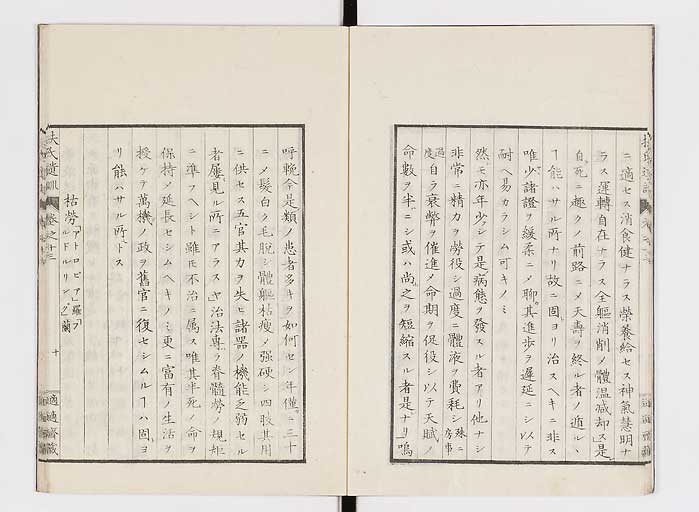 ニ適セス消食健ナラス榮養給セス神氣慧明ナ
ラス運轉自在ナラス全軀消削〆體温減却ス是レ
自死ニ趣クノ前路ニ〆天壽ヲ終ル者ノ遁ルヽ
ヿ能ハサル所ナリ故ニ固ヨリ治スヘキニ非ス
唯少ク諸證ヲ緩柔ニ〆聊其進歩ヲ遲延ニシ以テ
耐ヘ易カラシム可キノミ
然モ亦年少シテ是病態ヲ發スル者アリ他ナシ
非常ニ精力ヲ勞役シ過度ニ體液ヲ費耗シ殊ニ房事
過度自ラ衰弊ヲ催進〆命期ヲ促役シ以テ天賦ノ
命數ヲ半ニシ或ハ尚之ヲ短縮スル者是ナリ嗚
呼輓今是類ノ患者多キヲ如何セン年僅ニ三十
ニ〆髮白ク毛脱シ體軀枯瘦〆强硬シ四肢其用
ニ供セス五官其力ヲ失ヒ諸器ノ機能乏弱セル
者屢見ル所ニアラスヤ治法專ラ脊髓勞ノ規矩
ニ準フヘシト雖モ不治ニ属ス唯其半死ノ命ヲ
保持〆延長セシムヘキノミ更ニ富有ノ生活ヲ
授ケテ萬機ノ政ヲ舊官ニ復セシムルヿハ固ヨ
リ能ハサル所トス
枯勞「アトロピア」羅「フルドルリング」蘭
扶氏遺訓 卷之十三 十 適適齋藏